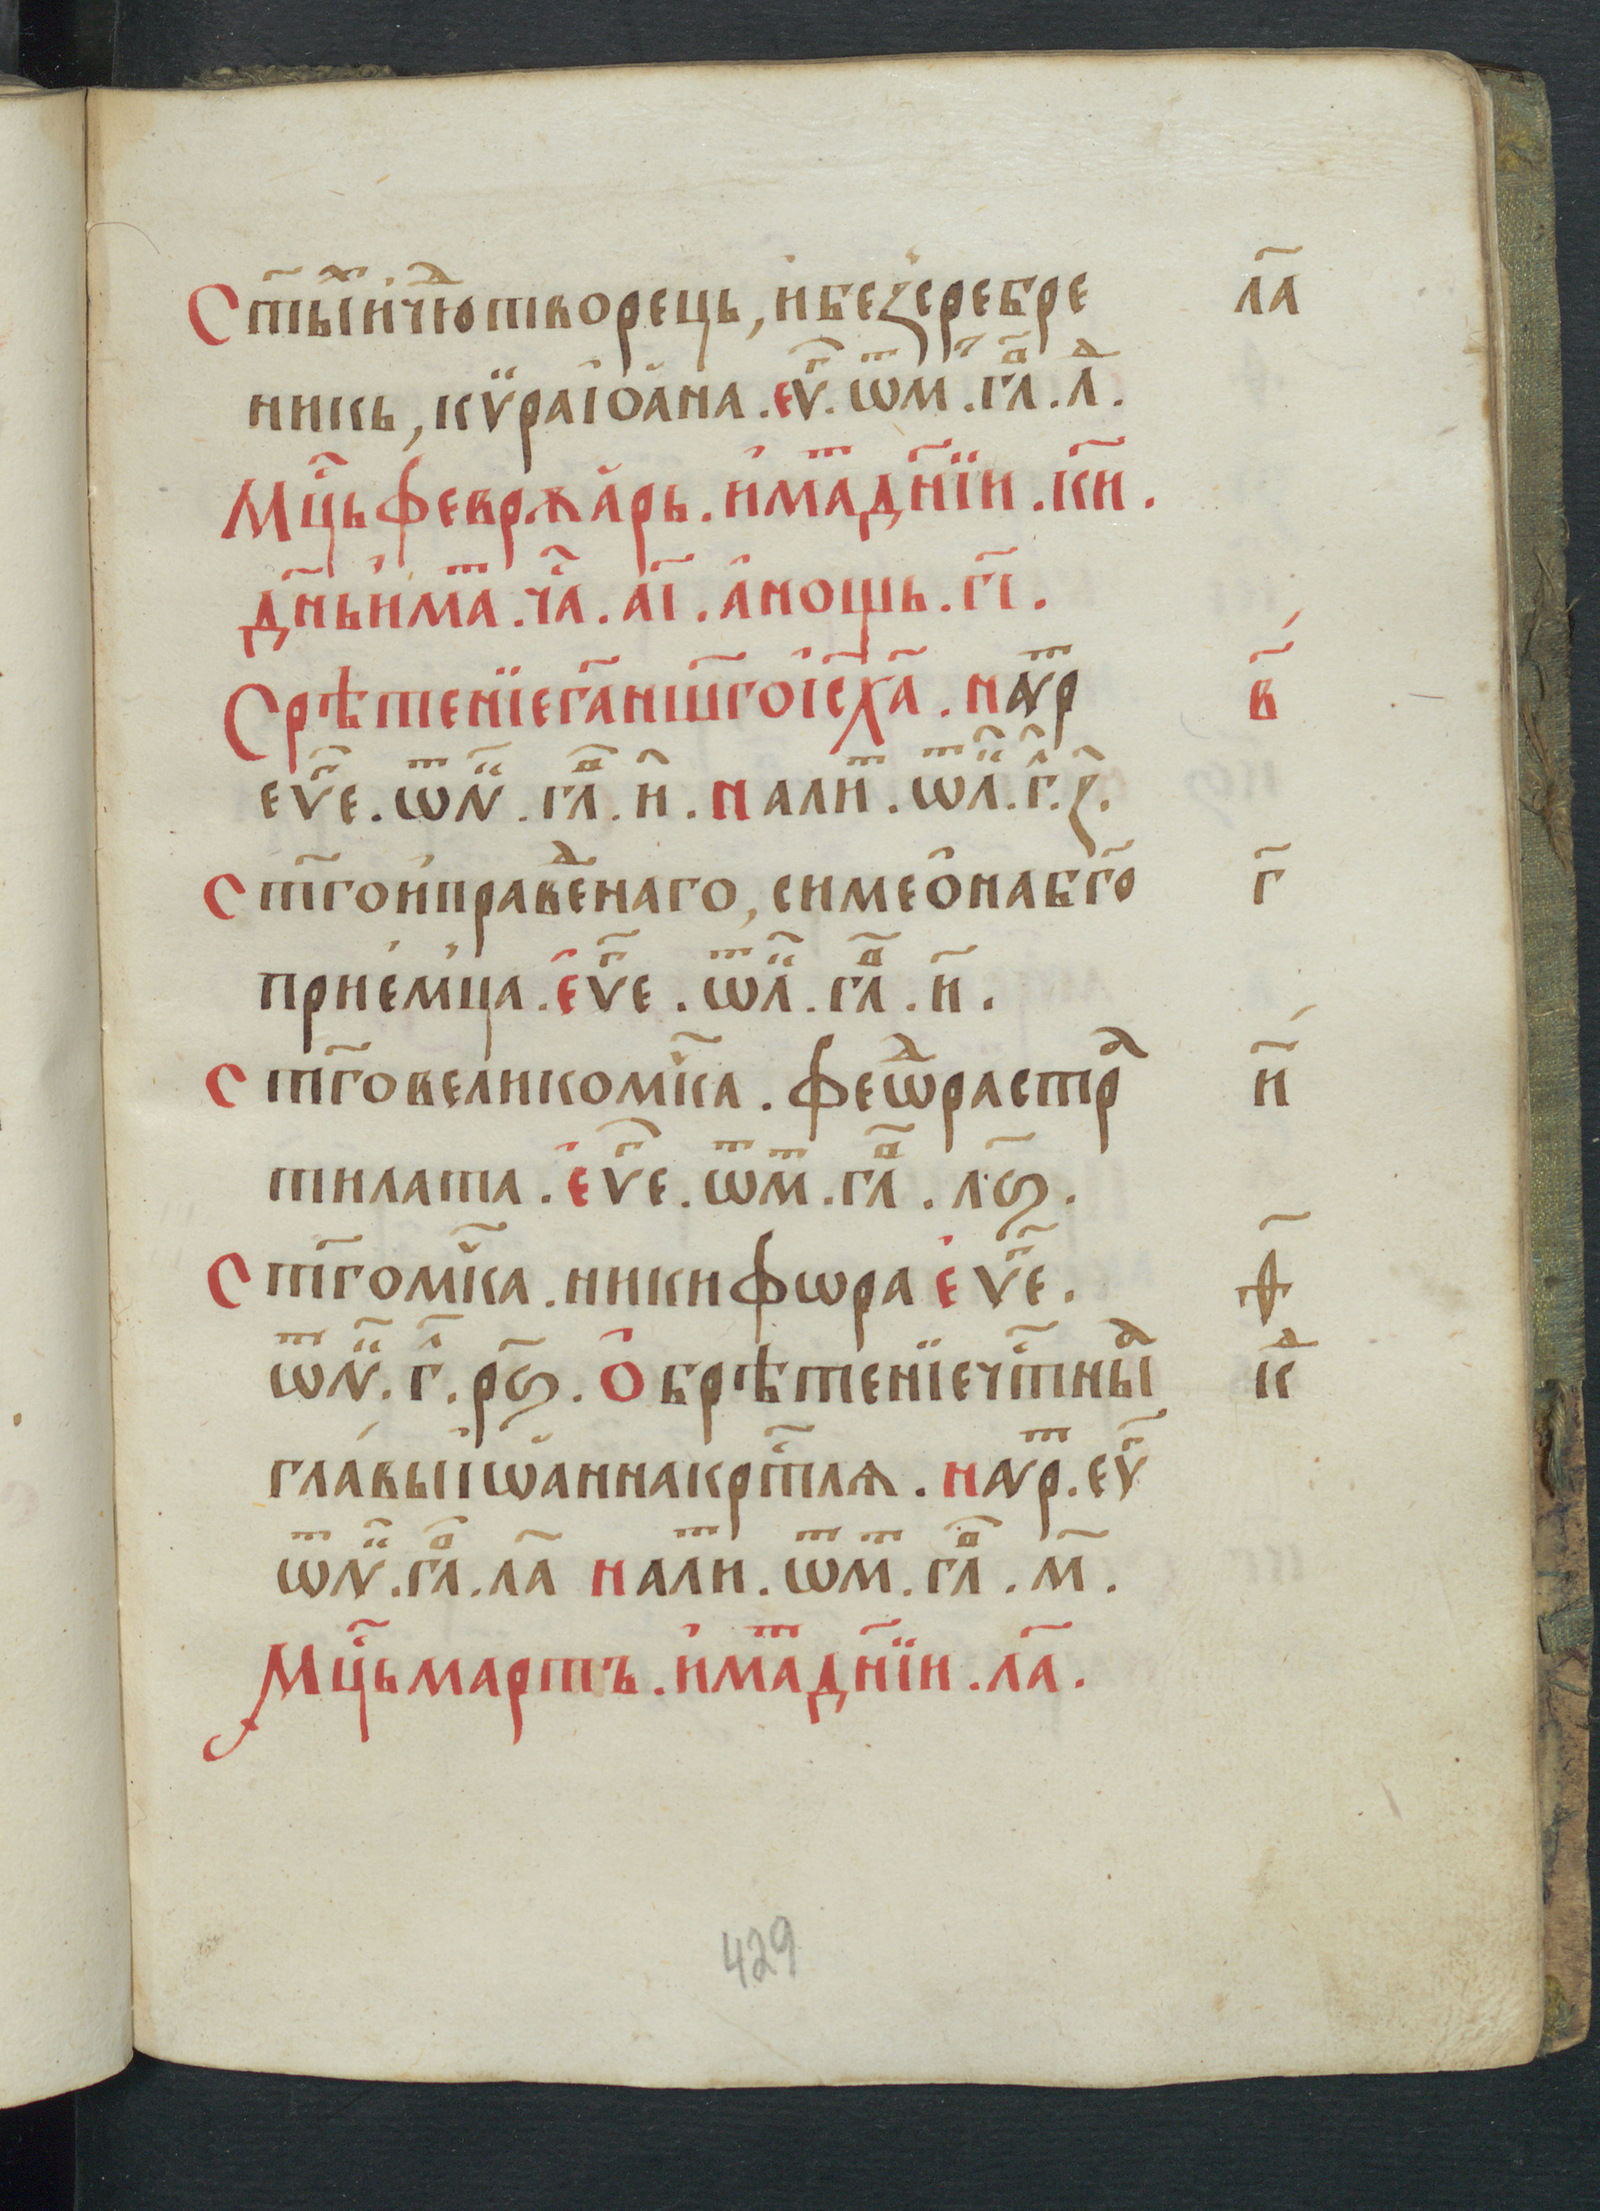 Ст҃ыⷯ и҆ чюⷣтворець, и҆ беꙁсребре ла҃
никь, кѵ̈ра і҆оа҆на. еѵⷢ҇. ѿ м. гл҃в. л҃д.
Мцⷭ҇ь феврѧа҆рь. и҆маⷮ дн҃їи. ки҃.
дн҃ь и҆маⷮ. ча҃. аі҃. а҆ нощь. гі҃.
Срѣтенїе га҃ нш҃го і҆с х҃а. на ѵⷮр в҃
еѵⷢ҇е. ѿ лⷦ҇. глⷡ҇. и҃. На лиⷮ. ѿ лⷦ҇. г҃. ꙁ҃.
Ст҃го и҆ праведⷣнаго, симео҆на бг҃о г҃
прие҆мⷰ҇а. є҆ѵⷢ҇е. ѿ лⷦ҇. глⷡ҇. и҃.
Ст҃го великомⷱ҇ка. феѡⷣра стрⷣа и҃
тилата. є҆ѵⷢ҇е. ѿ мⷮ. глⷡ҇. лѕ҃.
Ст҃го мⷱ҇ка. никифѡра є҆ѵⷢ҇е. ѳ҃
ѿ лⷦ҇. г҃. рѕ҃. О҆брѣтенїе чⷭ҇тныⷶ кд҃
главы і҆ѡа҆нна крⷭ҇тлѧ. на ѵⷮр. еѵⷢ҇
ѿ лⷦ҇. глⷡ҇. ла҃ на лиⷮ. ѿ мⷮ. глⷡ҇. м҃.
Мцⷭ҇ь мартъ. и҆маⷮ дн҃їи. ла҃.
429